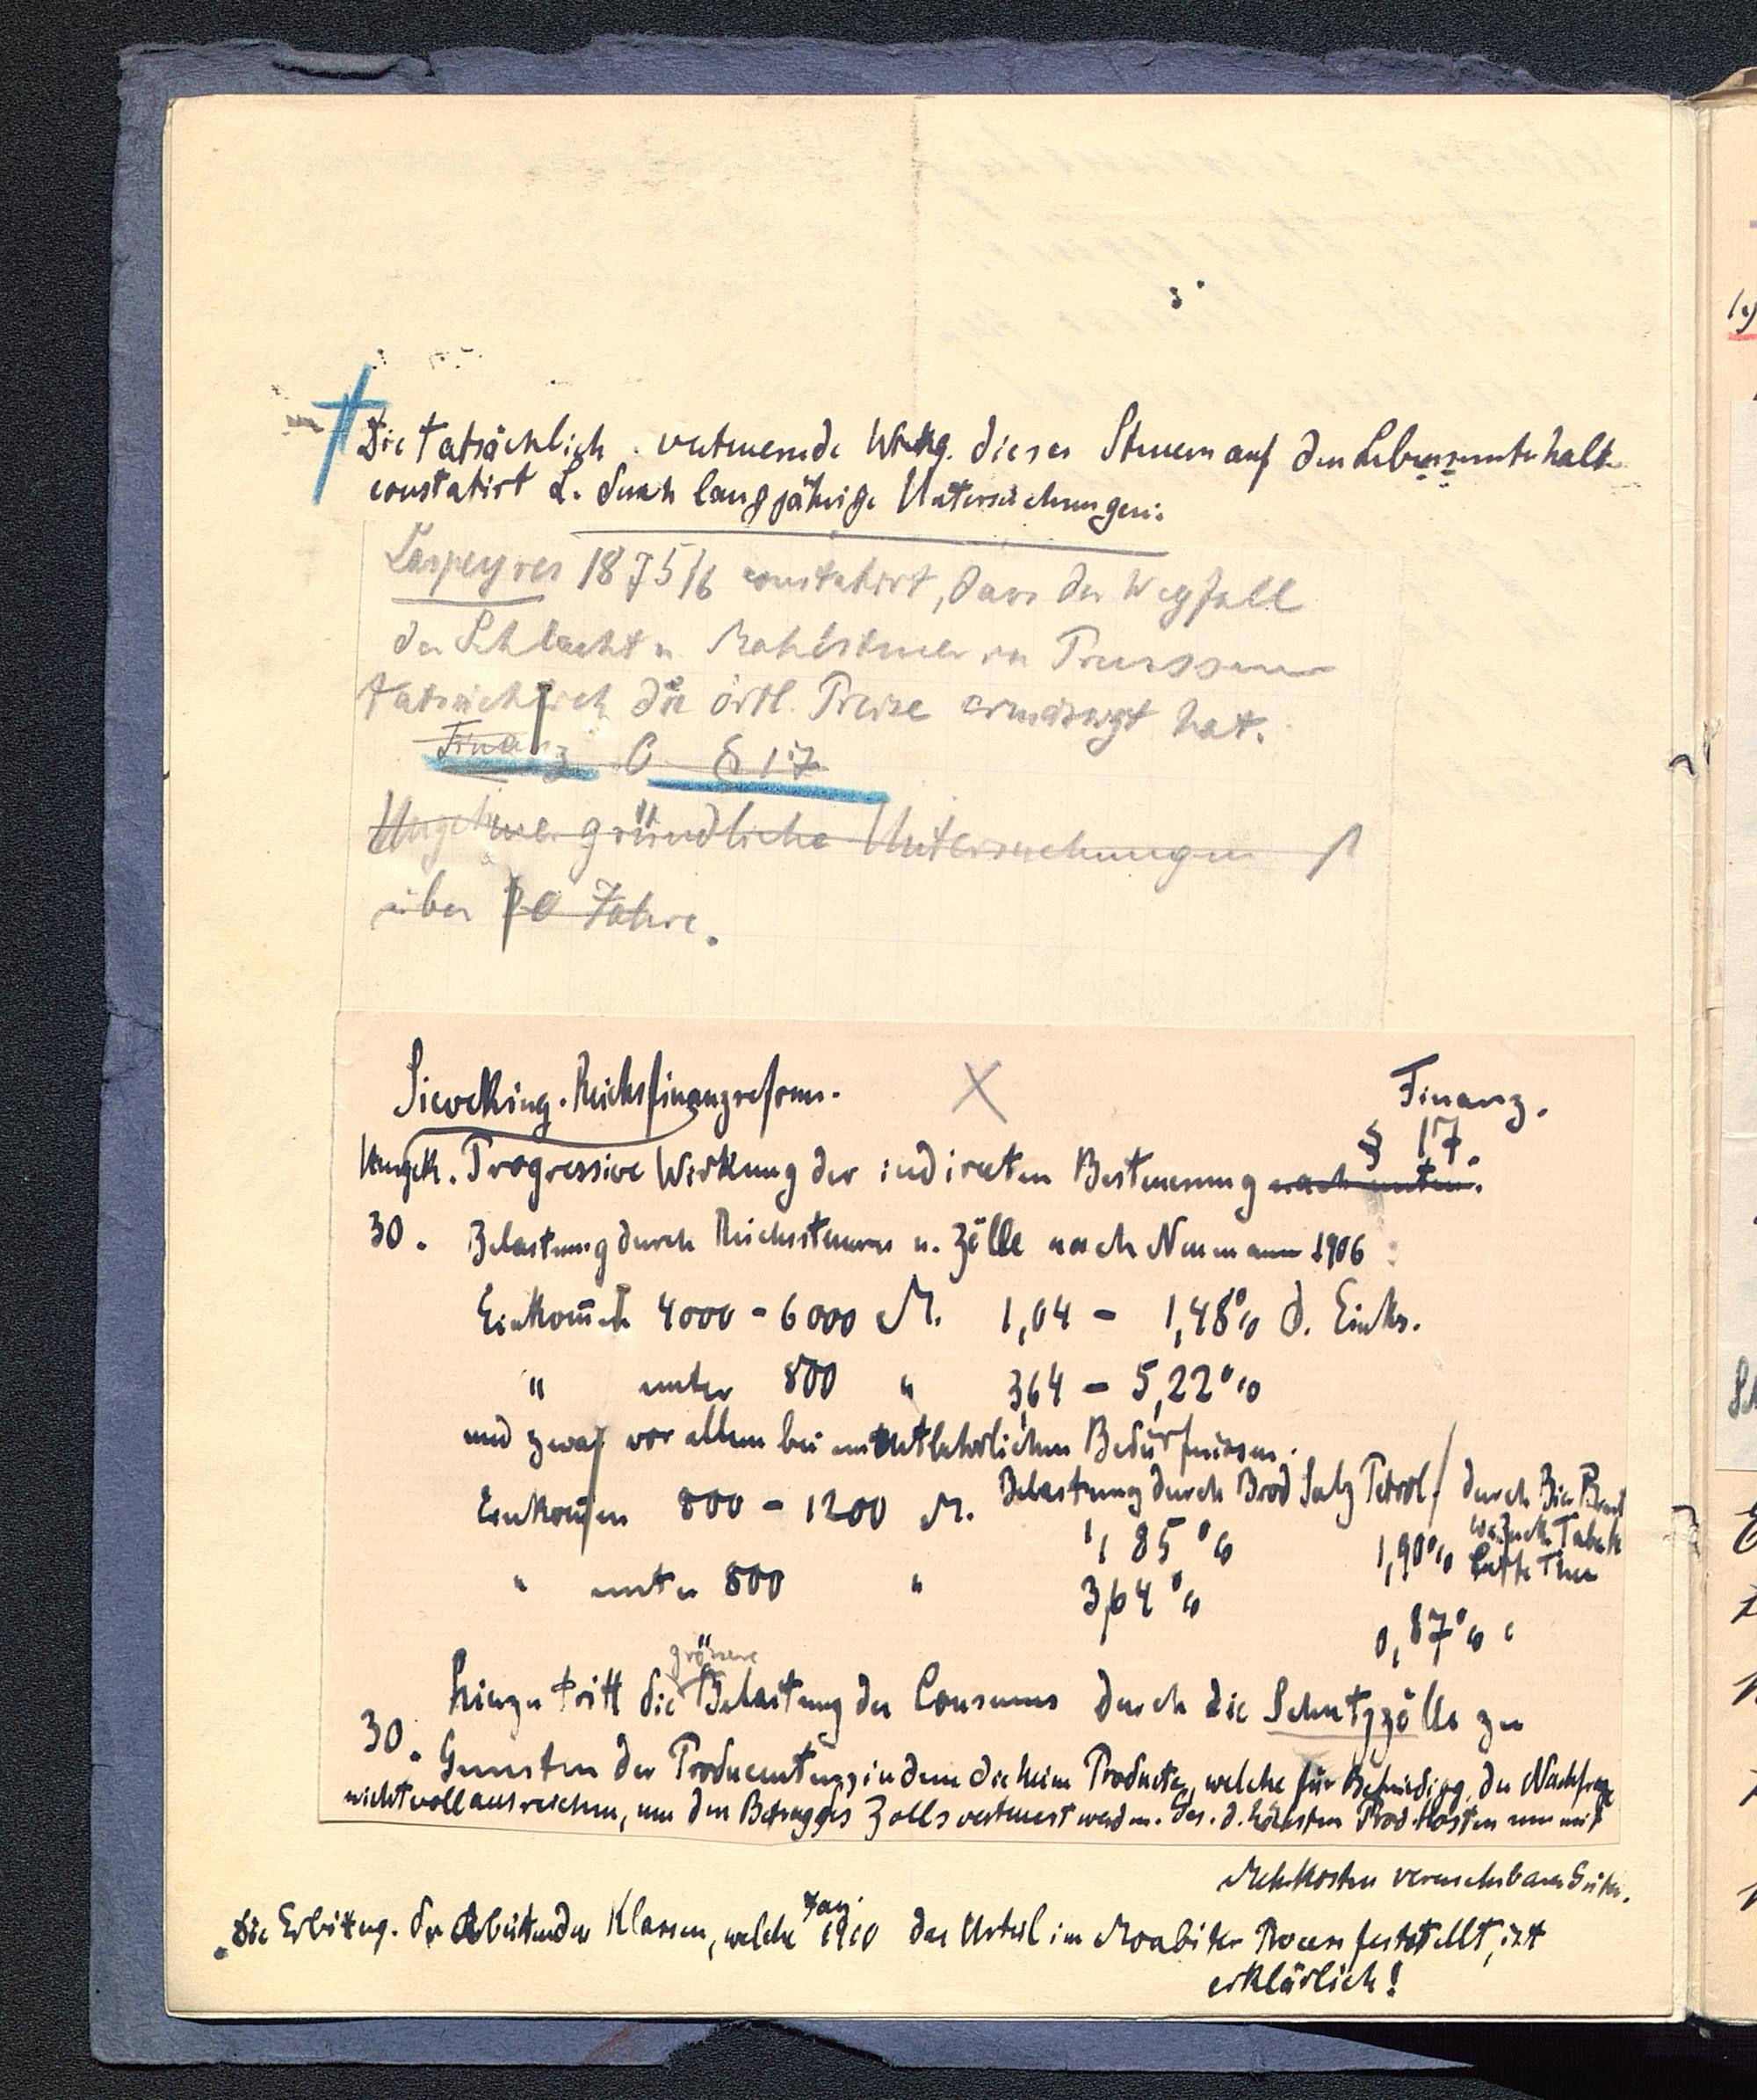 Die tatsächlich verteuernde Wirkg. dieser Steuern auf den Lebensunterhalt
constatirt L. durch langjährige Untersuchungen.
Laspeyres 1875/6 constatirt, dass der Wegfall
der Schlacht u Mahlsteuer in Preussen
tatsächlich die örtl. Preise ermässigt hat.
Finanz C § 17
Ungeheuer gründliche Untersuchungen
über Jahre.
Sieveking. Reichsfinanzreform.
Finanz.
§ 17.
Umgek. Progressive Wirkung der indirecten Besteuerung nach unten.
30. Belastung durch Reichssteuern u. Zölle nach Neumann 1906
Einkommen 4000 - 6000 M. 1,04 - 1,48% d. Eink.
" unter 800 " 3,64 - 5,22%
und zwar vor allem bei unentbehrlichen Bedürfnissen.
Einkommen 800 - 1200 M. Belastung durch Brod Salz Petrol. / durch Bier
1,85% 1,90% Tabak
Kaffe Thee
" unter 800 " 3,64%
0,87%
grössere
hinzu tritt die Belastung des Consums durch die Schutzzölle zu
30. Gunsten der Producenten, indem die heim. Producte, welche für Befriedigg. der Nachfrage
nicht voll ausreichen, um den Betrag des Zolls verteuert werden. Ges. d. höchsten Prod.Kosten
Mehrkosten vermehrbarer Güter.
Die Erbittrg. der Arbeitenden Klassen, welche Jan. 1910 das Urteil im Moabiter Process feststellt, ist
erklärlich!